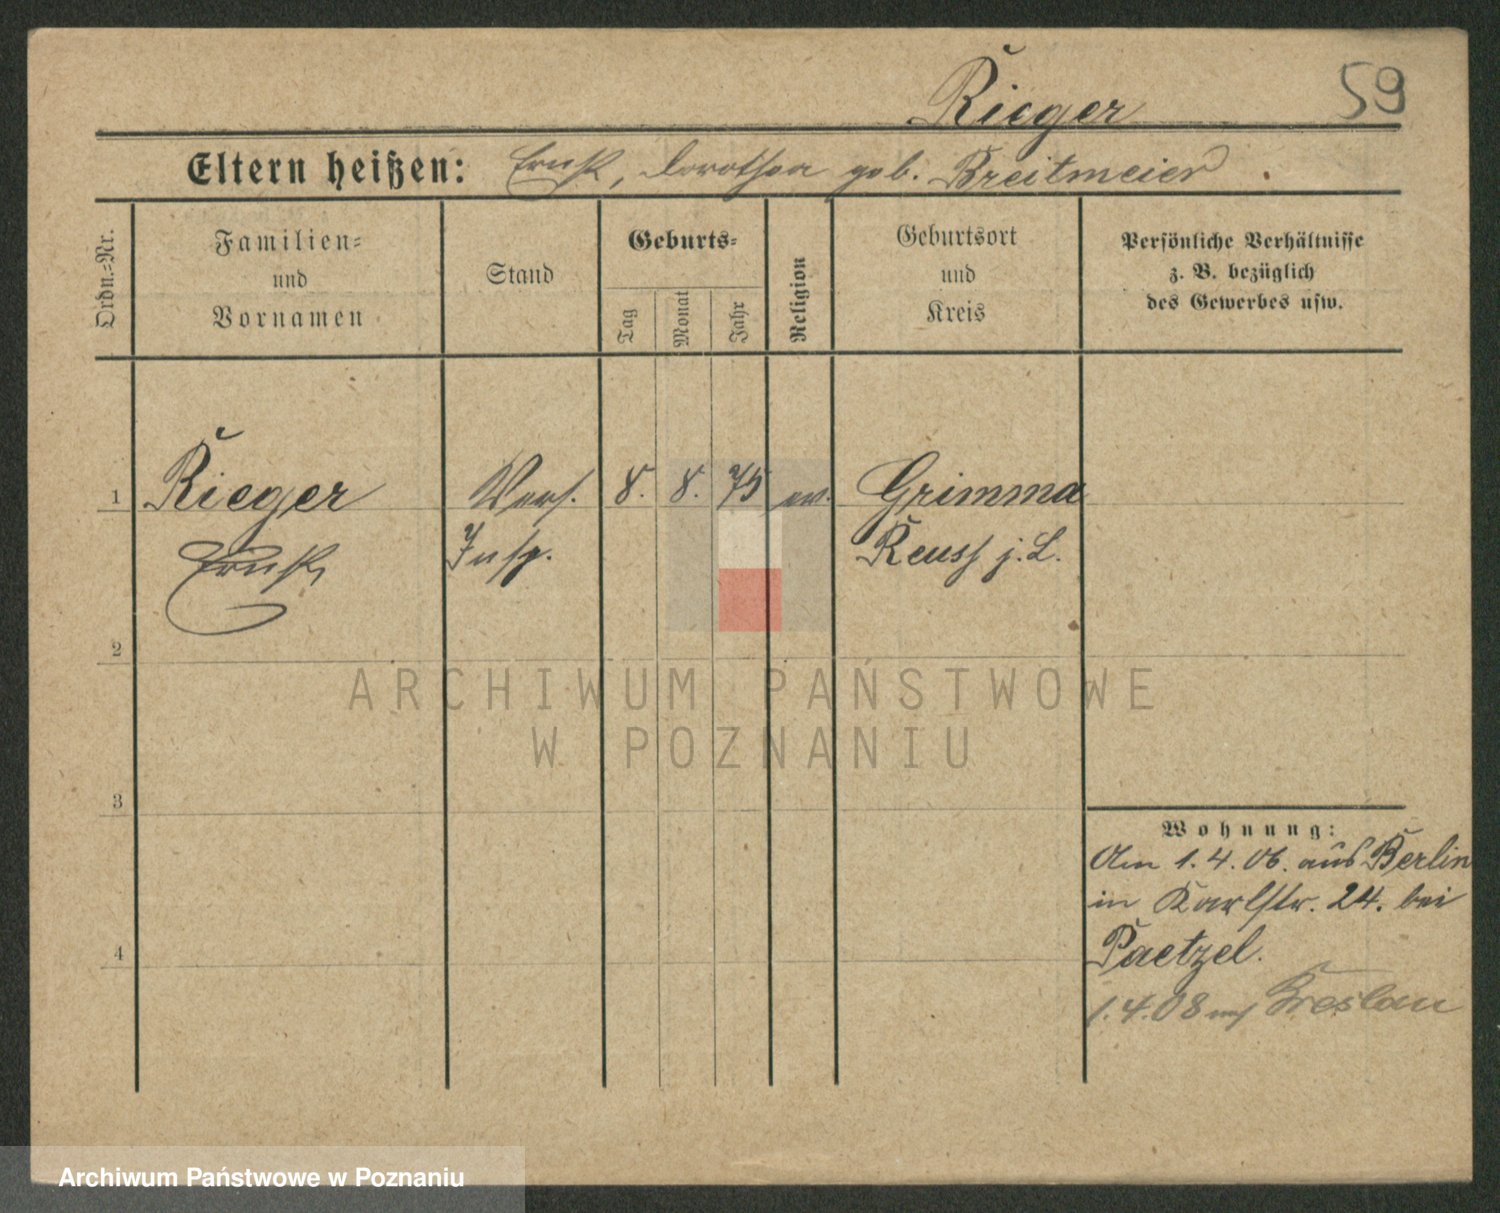 59
Rieger
Eltern heißen: Ernst, Dorothea geb. Breitmeier.
Ordn.-Nr.
Familien-
und
Vornamen
Stand
Geburts-
Tag
Monat
Jahr
Religion
Geburtsort
und
Kreis
Persönliche Verhältnisse
z. B. bezüglich
des Gewerbes usw.
1 Rieger Vers. 8. 8. 75 ev. Grimma
Ernst Insp. Reuss j. L.
2
ARCHIWUM PAŃSTWOWE
W POZNANIU
3
Wohnung:
Am 1.4.06. aus Berlin
in Karlstr. 24. bei
4
Paetzel.
1.4.08 Breslau
Archiwum Państwowe w Poznaniu